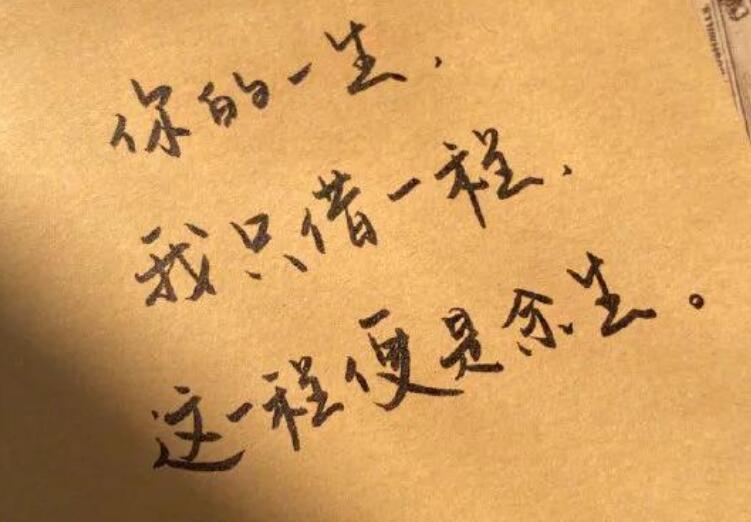 你的一生，
我只借一程，
这一程便是余生。